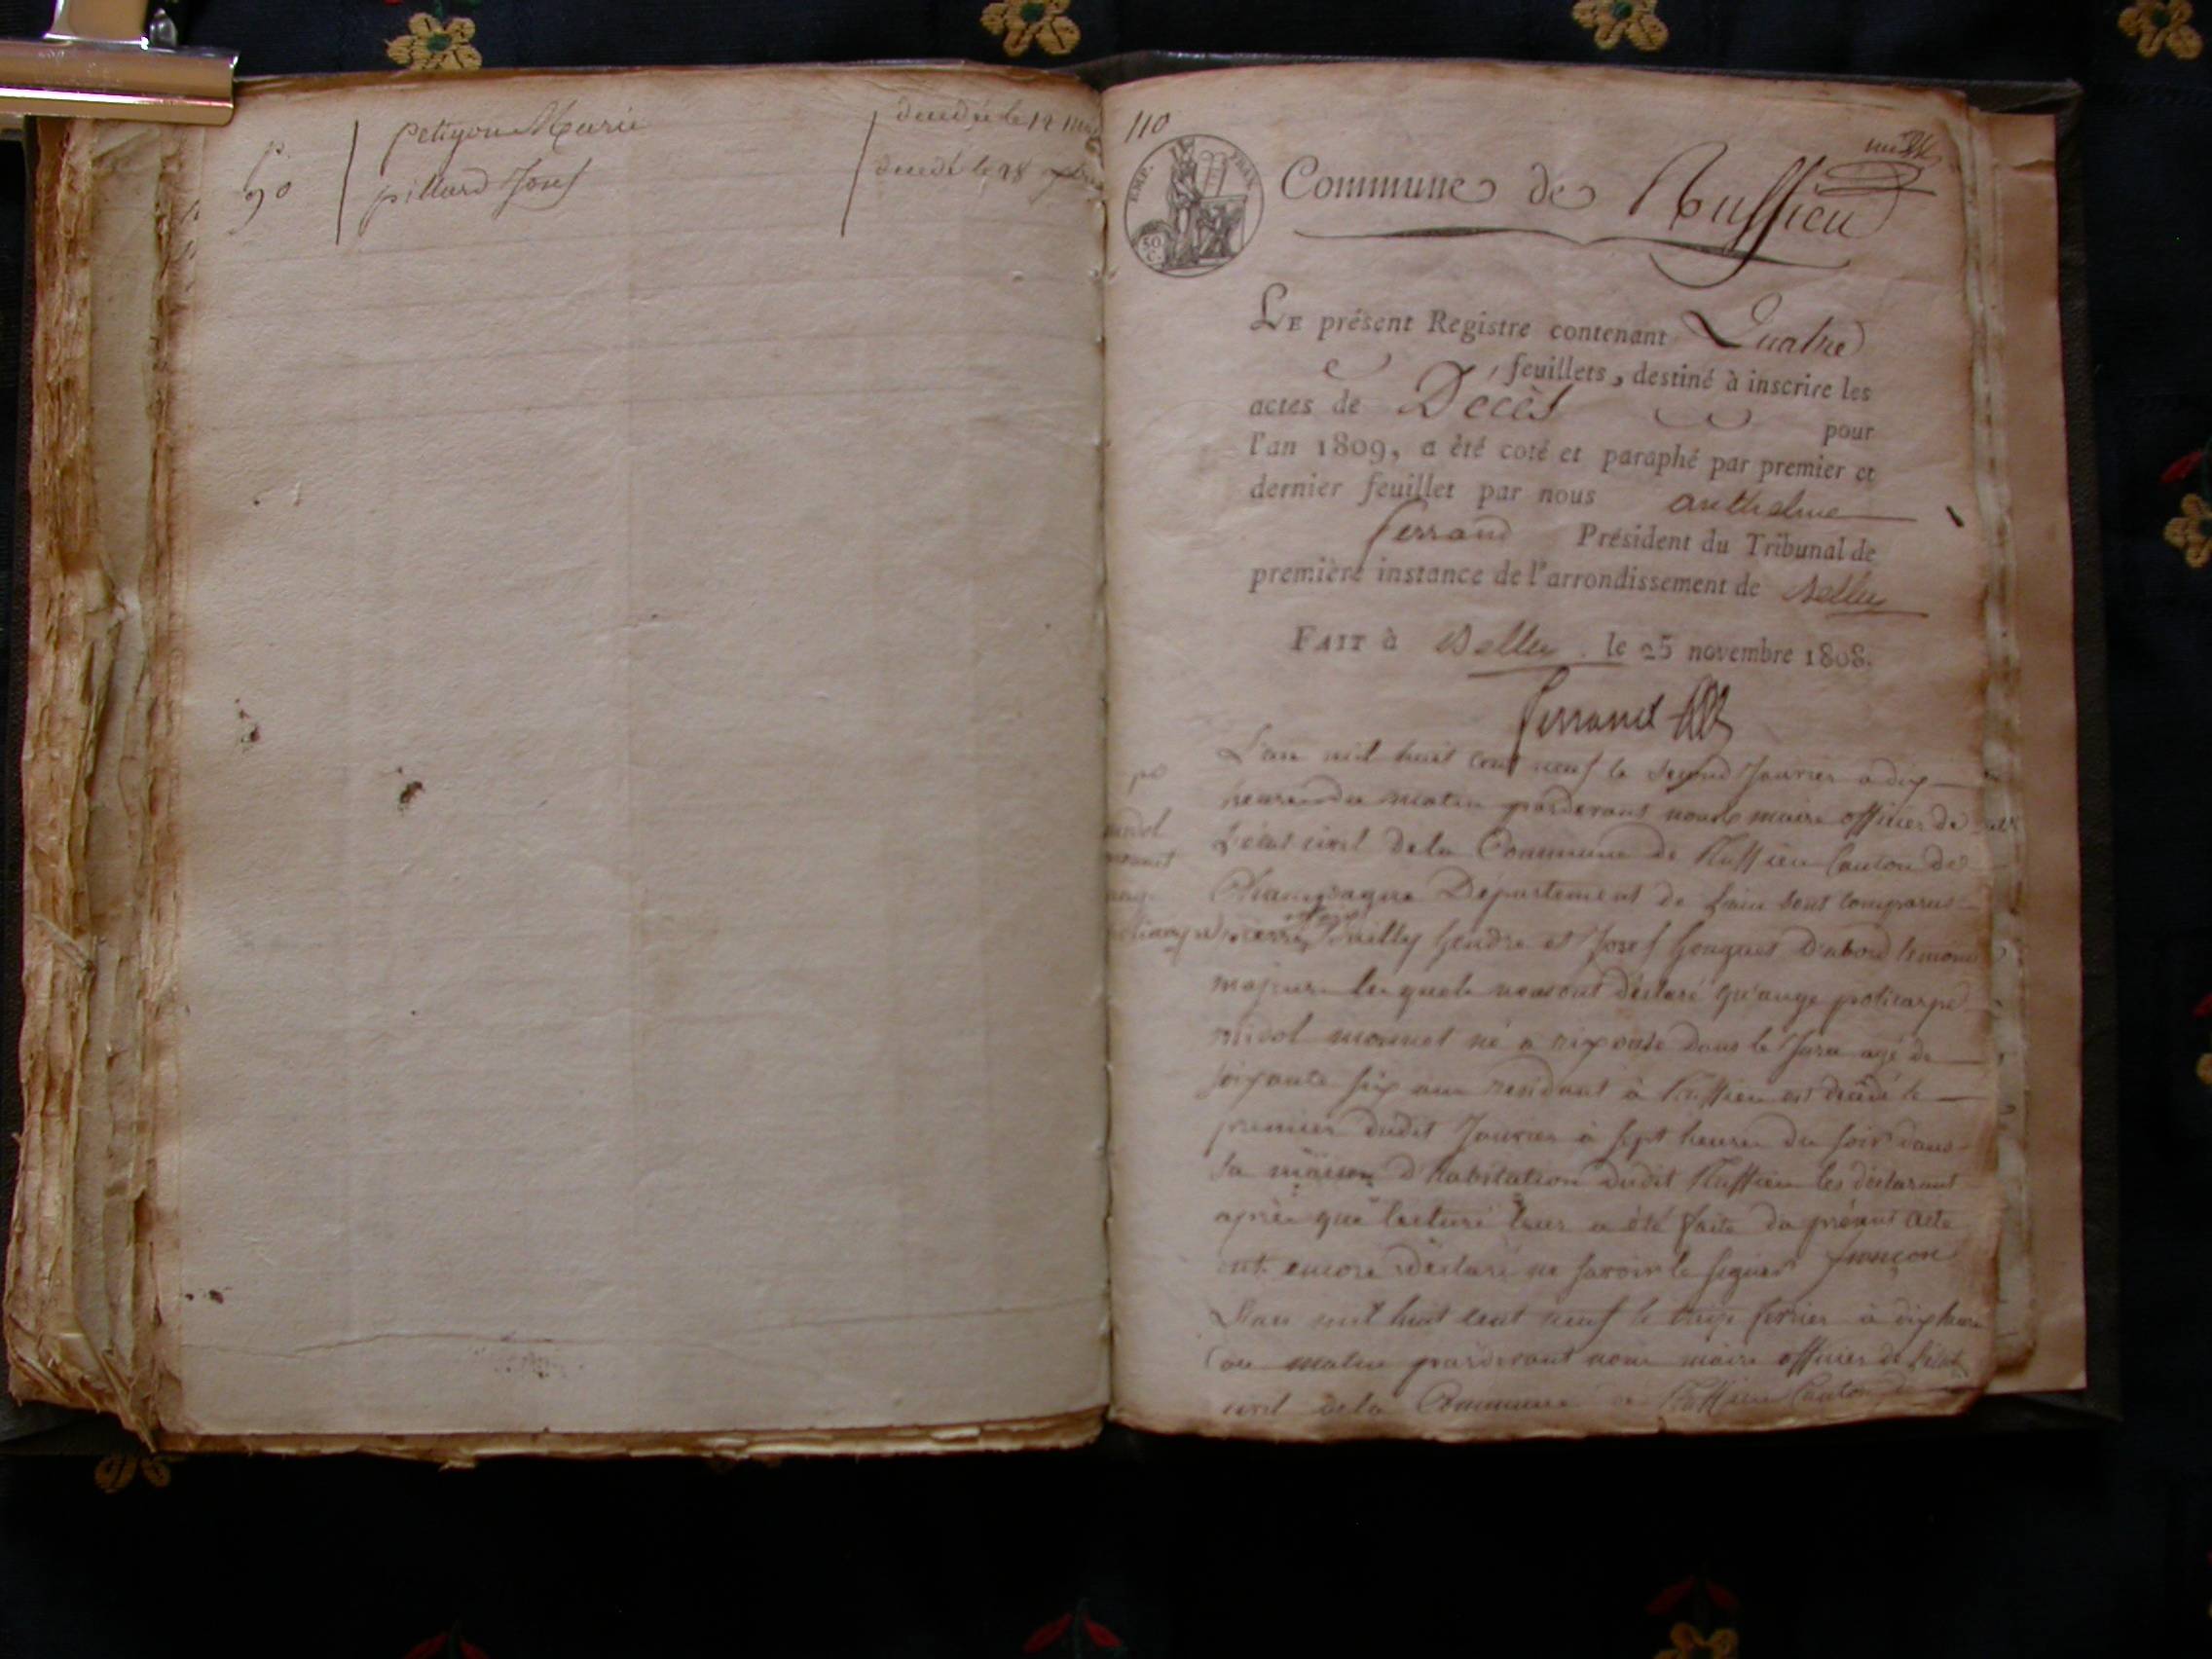 petigon Marie
décédée le 12
p.
90
pillard Josef
décédé le 28
110
EMP. FRAN.
50 C.
Commune de Ruffieu
LE présent Registre contenant Quatre
feuillets, destiné à inscrire les
actes de Décès pour
l'an 1809, a été coté et paraphé par premier et
dernier feuillet par nous anthelme
ferrand Président du Tribunal de
première instance de l'arrondissement de Belley
FAIT à Belley. le 25 novembre 1808.
ferrand
L'an mil huit cent neuf le second Janvier a dix
heures du matin pardevant nous maire officier de
L'état civil de la Commune de Ruffieu Canton de
Champagne Département de Lain sont comparus
pierre gendre et Josef D'abord
majeurs lesquels nous ont déclaré qu'ange policarpe
midol monnet né a dans le Jura agé de
soixante six ans résidant à Ruffieu est décédé le
premier dudit Janvier à sept heures du soir dans
sa maison d'habitation dudit Ruffieu les déclarant
après que lecture leur a été faite du présent acte
ont encore déclaré ne savoir le signer françon
L'an mil huit cent neuf le fevrier à dix heures
du matin pardevant nous maire officier de l'état
civil de la Commune de Ruffieu Canton de